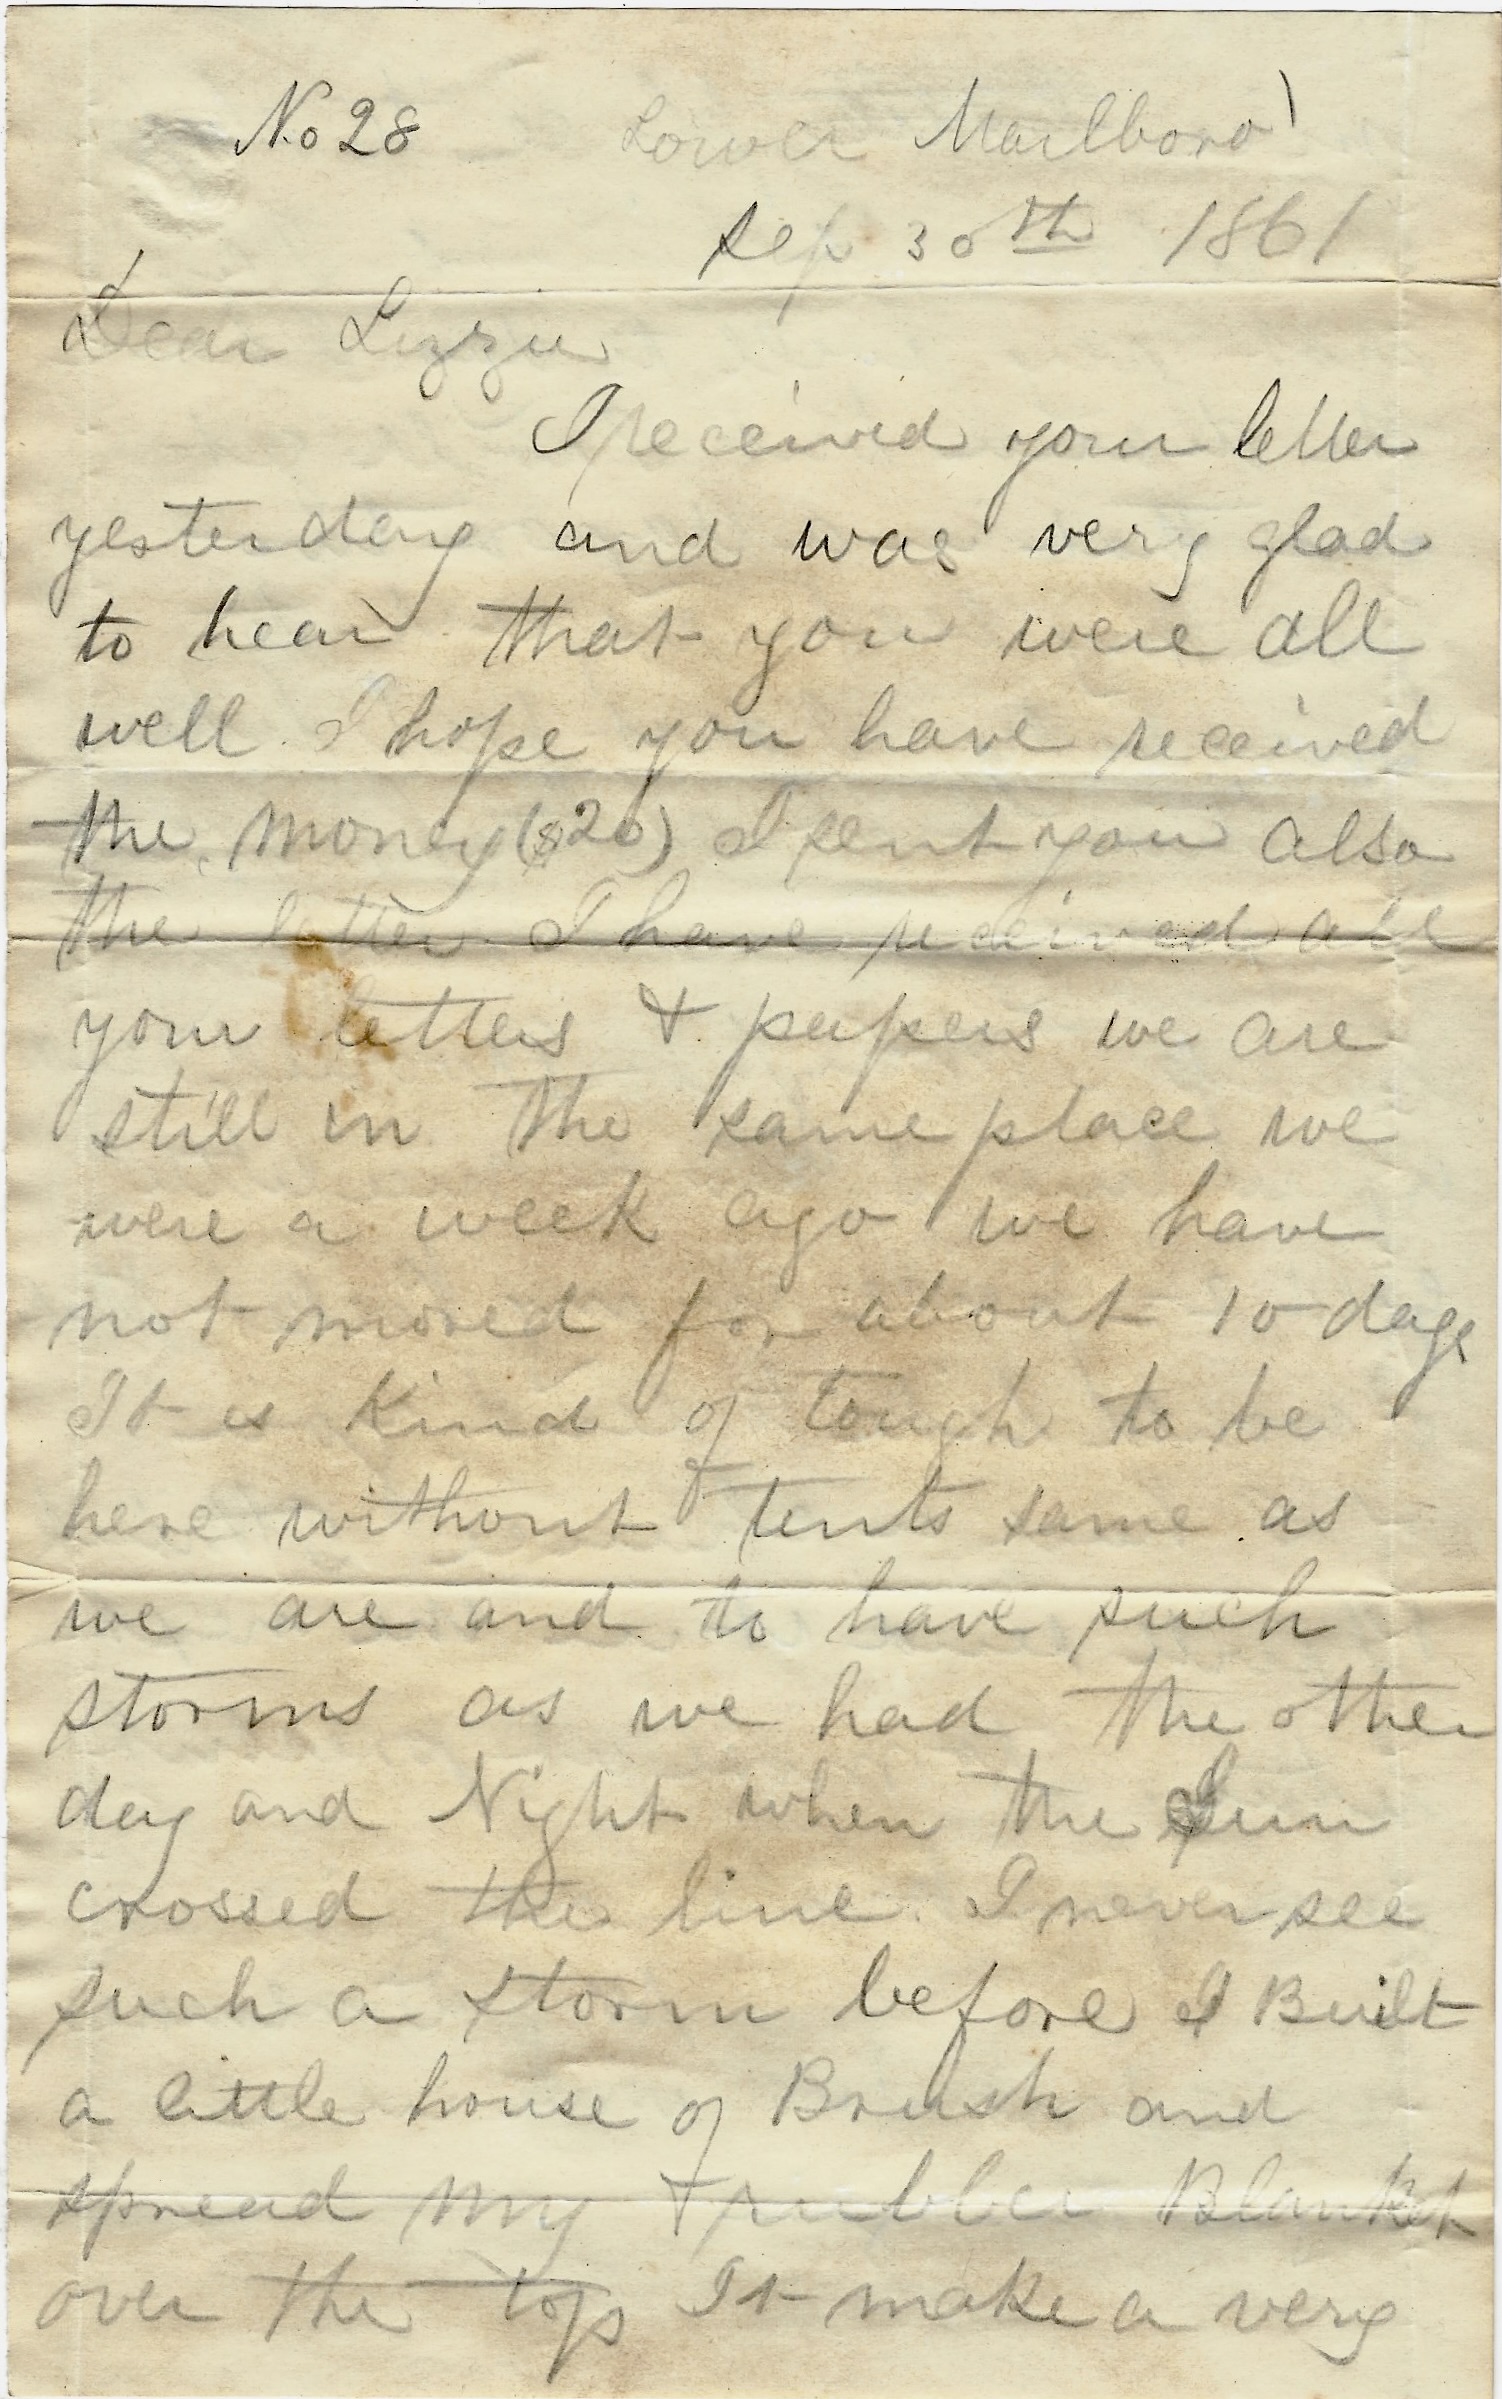 No 28 Lower Marlboro'
Sep 30th 1861
Dear Lizzie
I received your letter
yesterday and was very glad
to hear that you were all
well. I hope you have received
the money ($20) I sent you also
the letter. I have received all
your letters & papers we are
still in the same place we
were a week ago we have
not moved for about 10 days
It is kind of tough to be
here without tents same as
we are and to have such
storms as we had the other
day and Night when the Sun
crossed the line. I never see
such a storm before I Built
a little house of Brush and
spread my & rubber Blanket
over the top It make a very